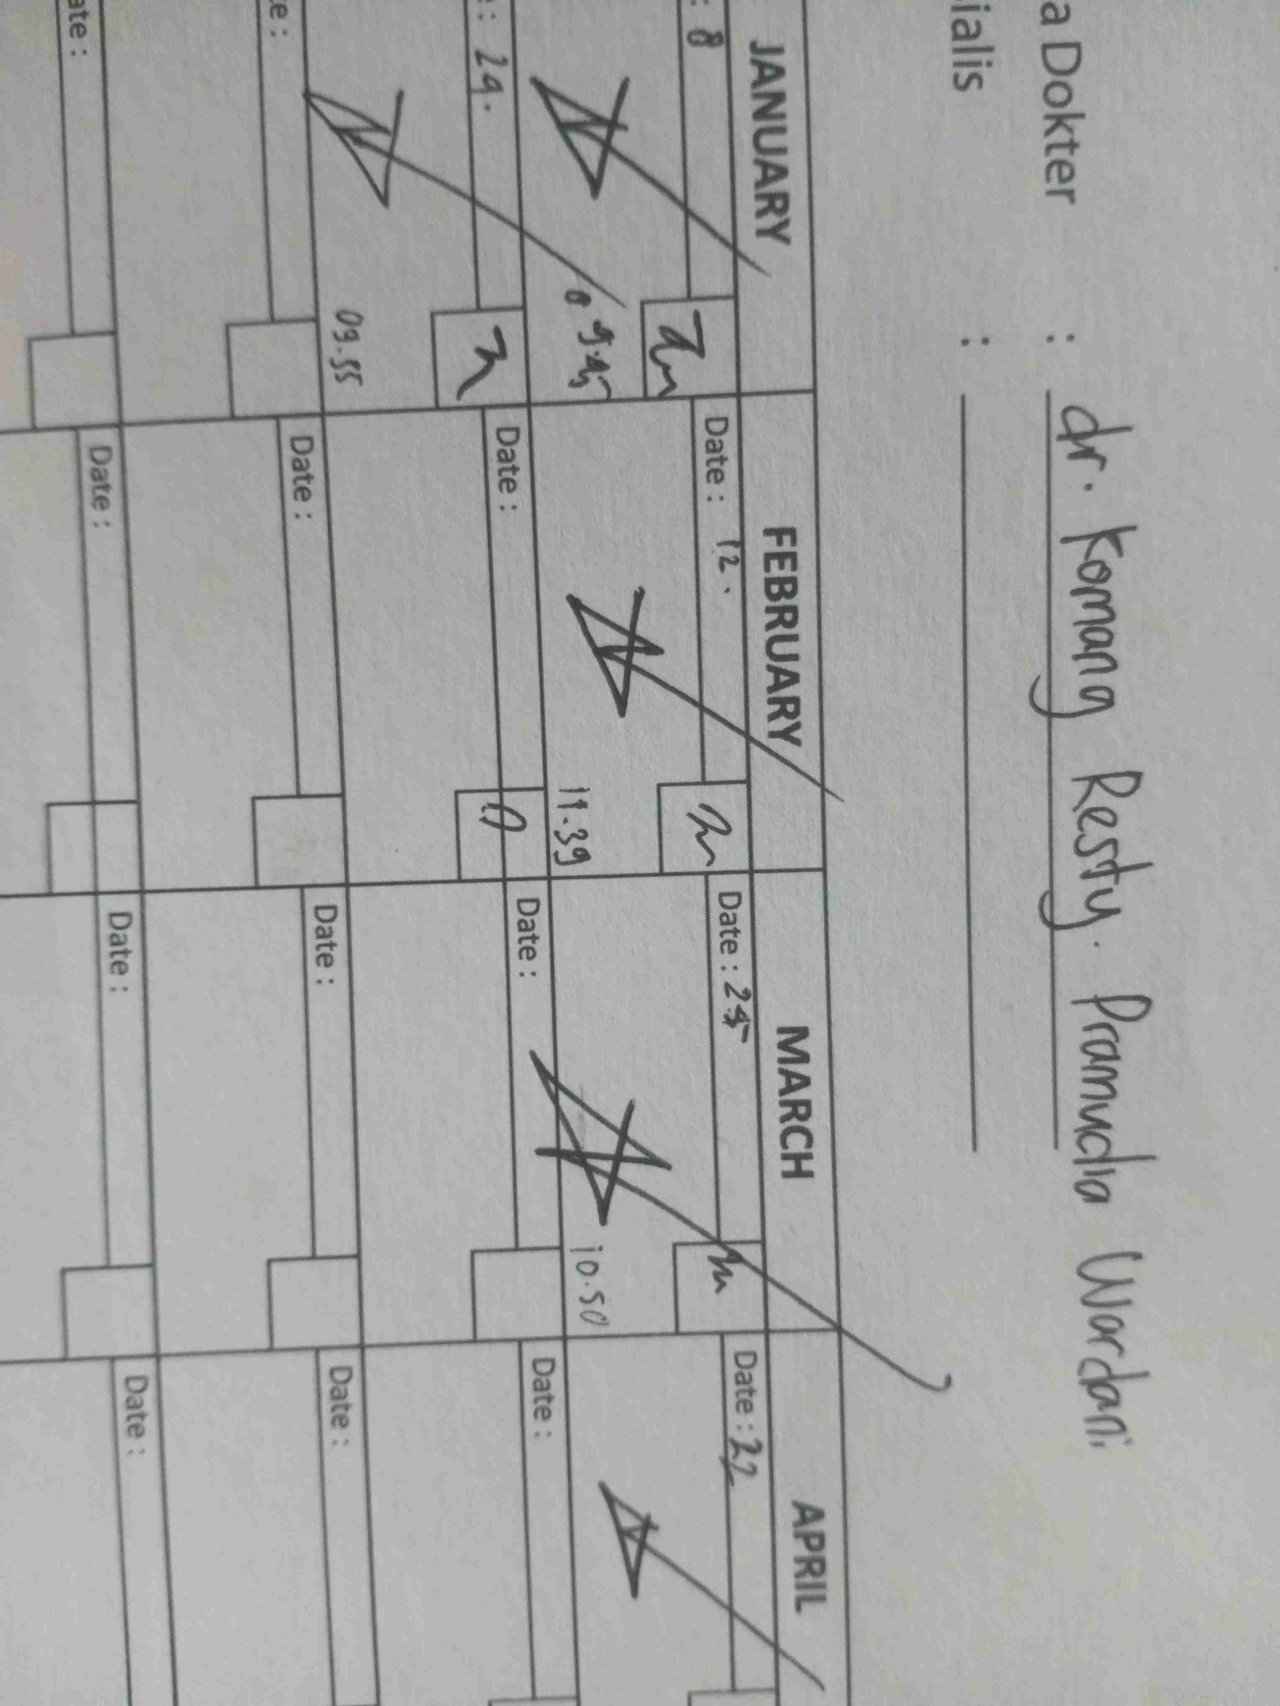 a Dokter : dr. Komang Resty. Pramudia Wardani
ialis :
JANUARY FEBRUARY MARCH APRIL
: 8 Date : 12. Date : 25 Date : 22
09.45 11.39 10.50
e : 29. Date : Date : Date :
09.55
e : Date : Date : Date :
ate : Date : Date : Date :